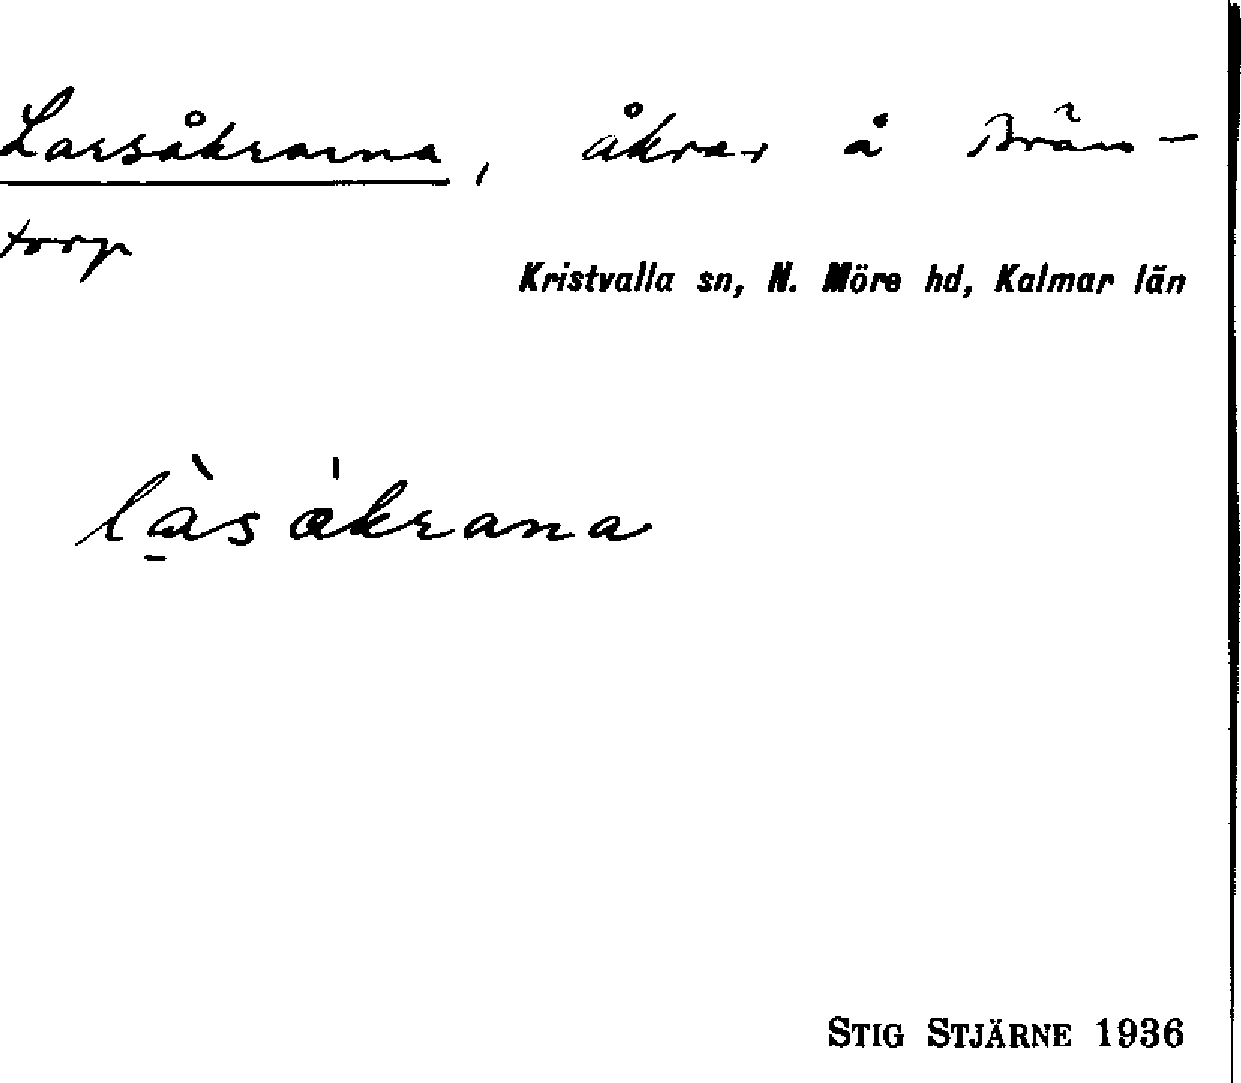 Larsåkrarna, åkrar å Brän-
torp
Kristvalla sn, N. Möre hd, Kalmar län
làsåkrana
STIG STJÄRNE 1936